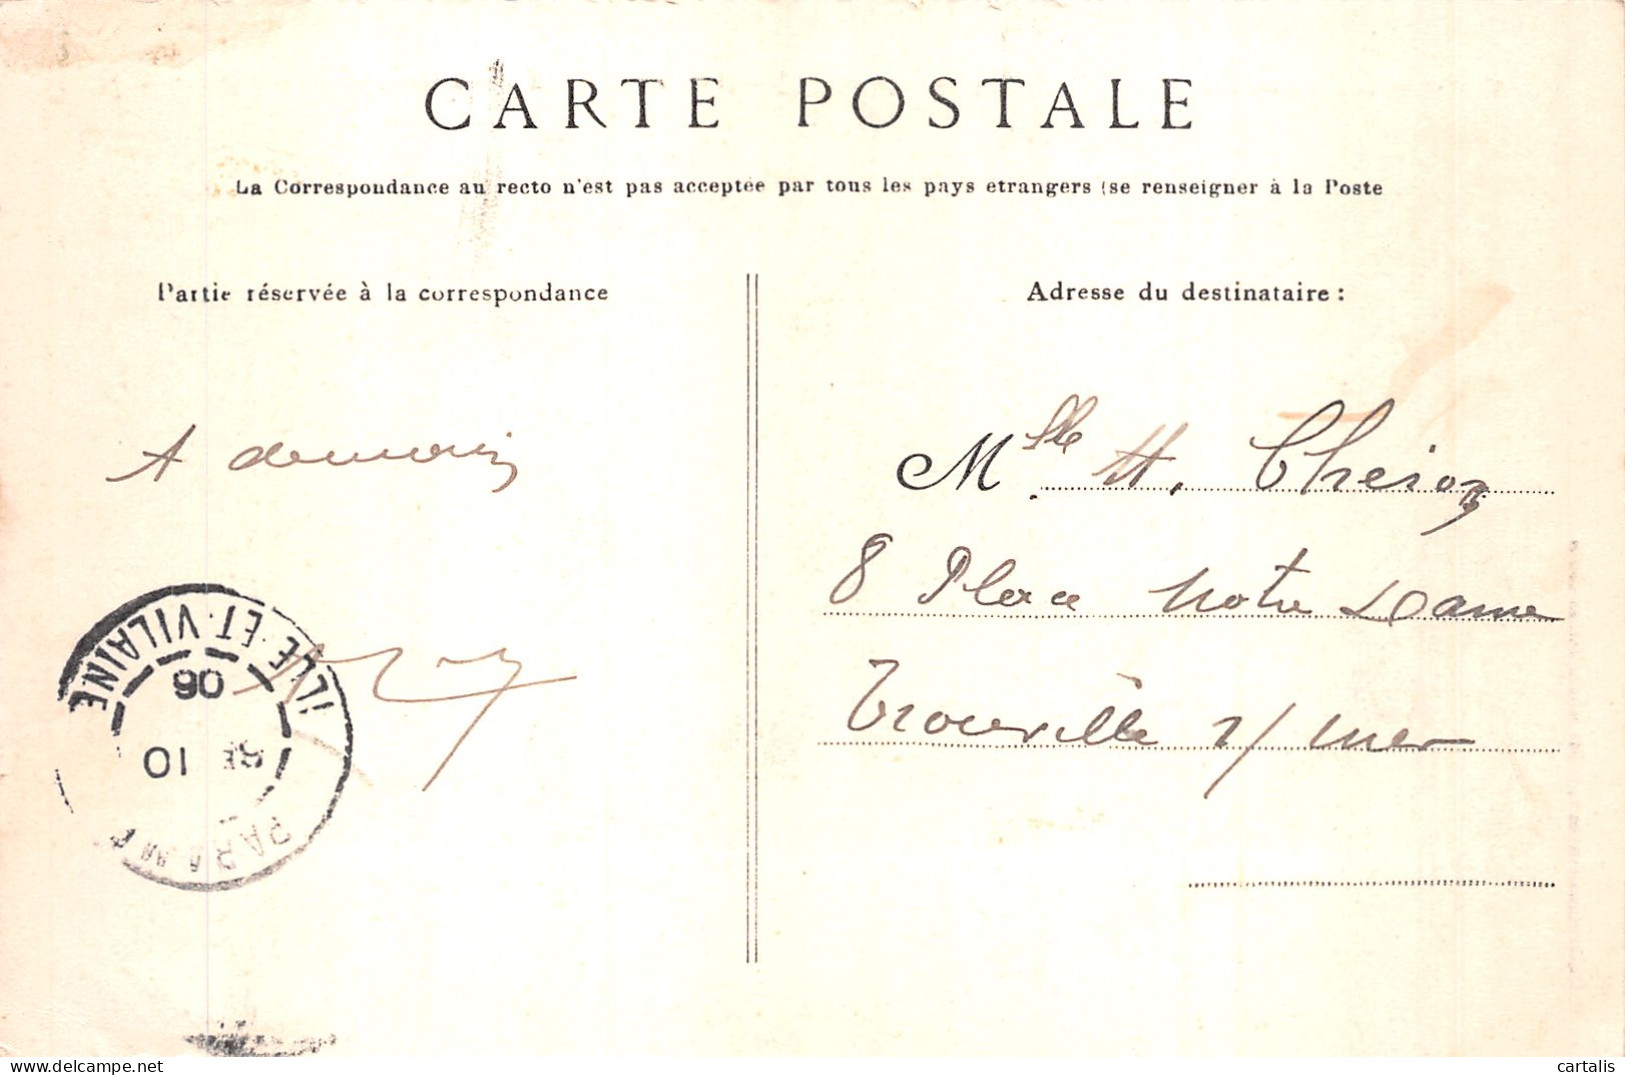 CARTE POSTALE
La Correspondance au recto n'est pas acceptée par tous les pays etrangers (se renseigner à la Poste
Partie réservée à la correspondance
A demain
Adresse du destinataire :
Mlle H. Cheron
8 Place Notre Dame
Trouville s/ mer
ILLE-ET-VILAINE
06
10
cartalis